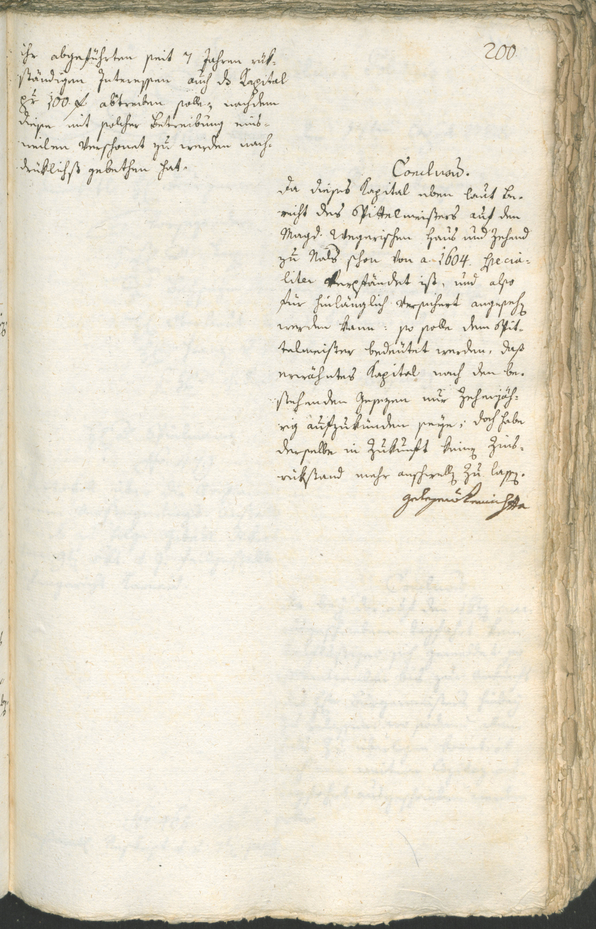 200
ihr abgeführten seit 7 Jahren rük-
ständigen Interessen auch ds Kapital
pr 100 f abtreiben solle, nachdem
diese mit solcher Betreibung eins-
weilen verschonet zu werden nach-
drüklichst gebethen hat.
Conclusum.
Da dieses Kapital eben laut Be-
richt des Spittelmeisters auf den
Magd. Wegerischen Haus und Zehend
zu Nals schon von a. 1604. specia-
liter verpfändet ist, und also
für hinlänglich versichert angesehen
werden kann: so solle dem Spit-
telmeister bedeutet werden, daß
erwähntes Kapital nach den be-
stehenden Gesezen nur Zehenjäh-
rig aufzukünden seye; doch habe
derselbe in Zukunft keine Zins-
rükstand mehr anschwellen zu lassen.